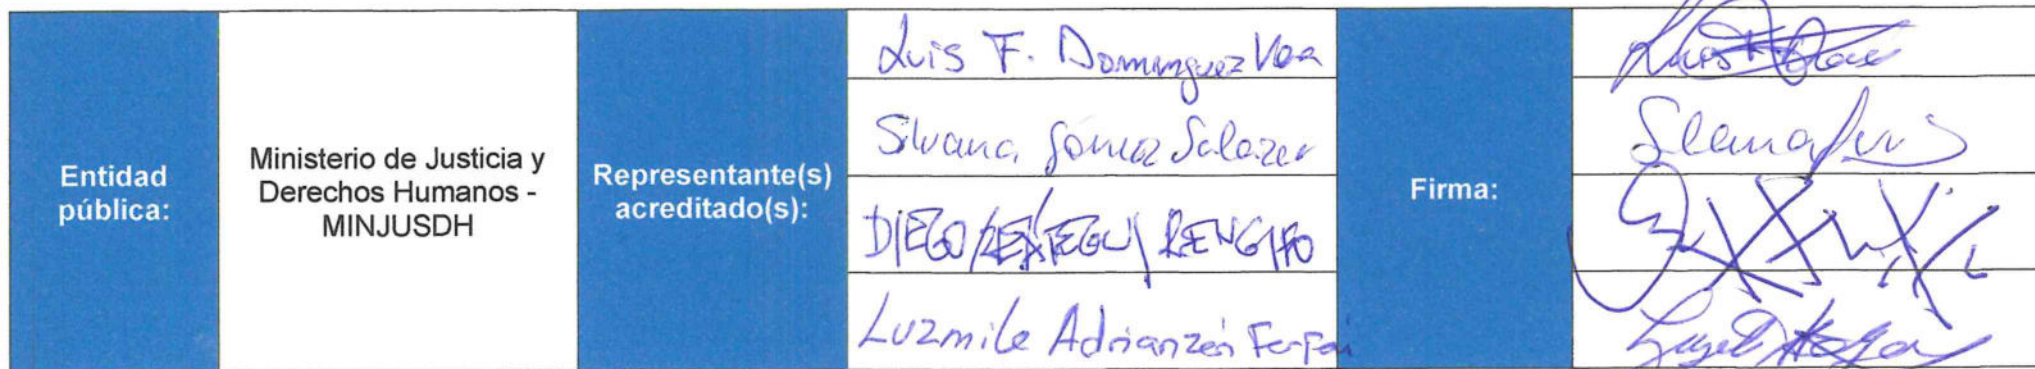 Entidad
pública:
Ministerio de Justicia y
Derechos Humanos -
MINJUSDH
Representante(s)
acreditado(s):
Luis F. Dominguez
Silvana Gómez Salazar
DIEGO REÁTEGUI RENGIFO
Luzmila Adrianzén
Firma: